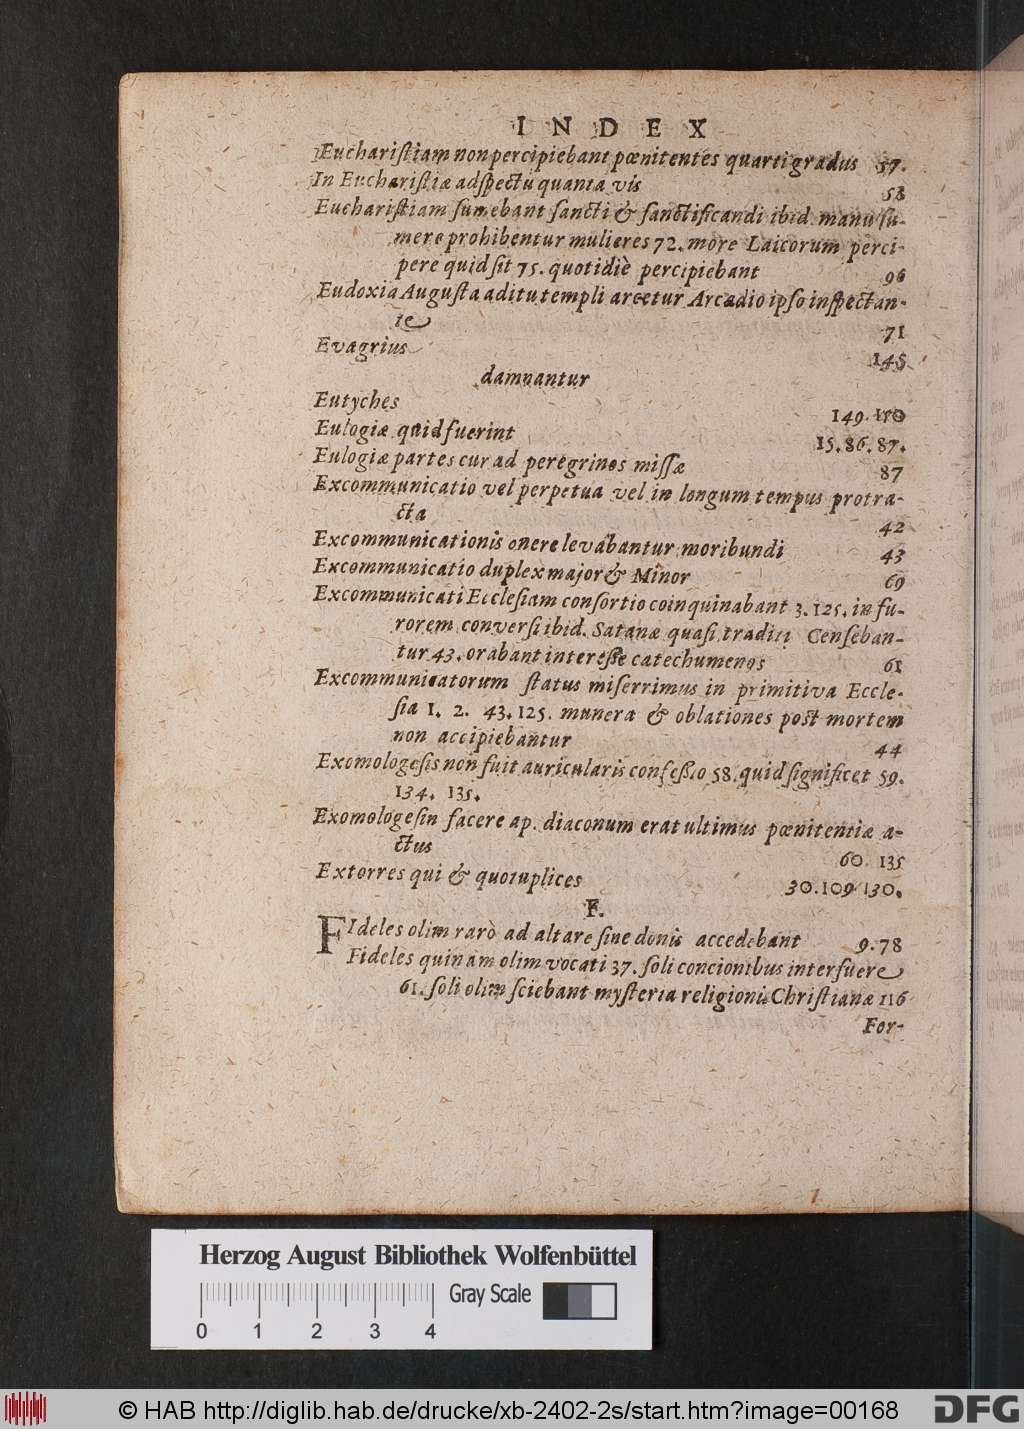 INDEX
Euchariſtiam non percipiebant pœnitentes quarti gradus 57.
In Euchariſtiæ adſpectu quanta vis 58
Euchariſtiam ſumebant ſancti & ſanctificandi ibid. manu ſu-
mere prohibentur mulieres 72. more Laicorum perci-
pere quid ſit 75. quotidiè percipiebant 96
Eudoxia Auguſta aditu templi arcetur Arcadio ipſo inſpectan-
te 71
Evagrius 145
damnantur
Eutyches 149. 150
Eulogiæ quid fuerint 15. 86. 87.
Eulogiæ partes cur ad peregrinos miſſæ 87
Excommunicatio vel perpetua vel in longum tempus protra-
cta 42
Excommunicationis onere levabantur moribundi 43
Excommunicatio duplex major & Minor 69
Excommunicati Eccleſiam conſortio coinquinabant 3. 125. in fu-
rorem converſi ibid. Satanæ quaſi traditi Cenſeban-
tur 43. orabant intereſſe catechumenos 61
Excommunicatorum ſtatus miſerrimus in primitiva Eccle-
ſia 1. 2. 43. 125. munera & oblationes poſt mortem
non accipiebantur 44
Exomologeſis non fuit auricularis confeßio 58. quid ſignificet 59.
134. 135.
Exomologeſin facere ap. diaconum erat ultimus pœnitentiæ a-
ctus 60. 135
Extorres qui & quotuplices 30. 109 130.
F.
FIdeles olim rarò ad altare ſine donis accedebant 9. 78
Fideles quinam olim vocati 37. ſoli concionibus interfuere
61. ſoli olim ſciebant myſteria religionis Chriſtianæ 116
For-
Herzog August Bibliothek Wolfenbüttel
Gray Scale
0 1 2 3 4
© HAB http://diglib.hab.de/drucke/xb-2402-2s/start.htm?image=00168
DFG